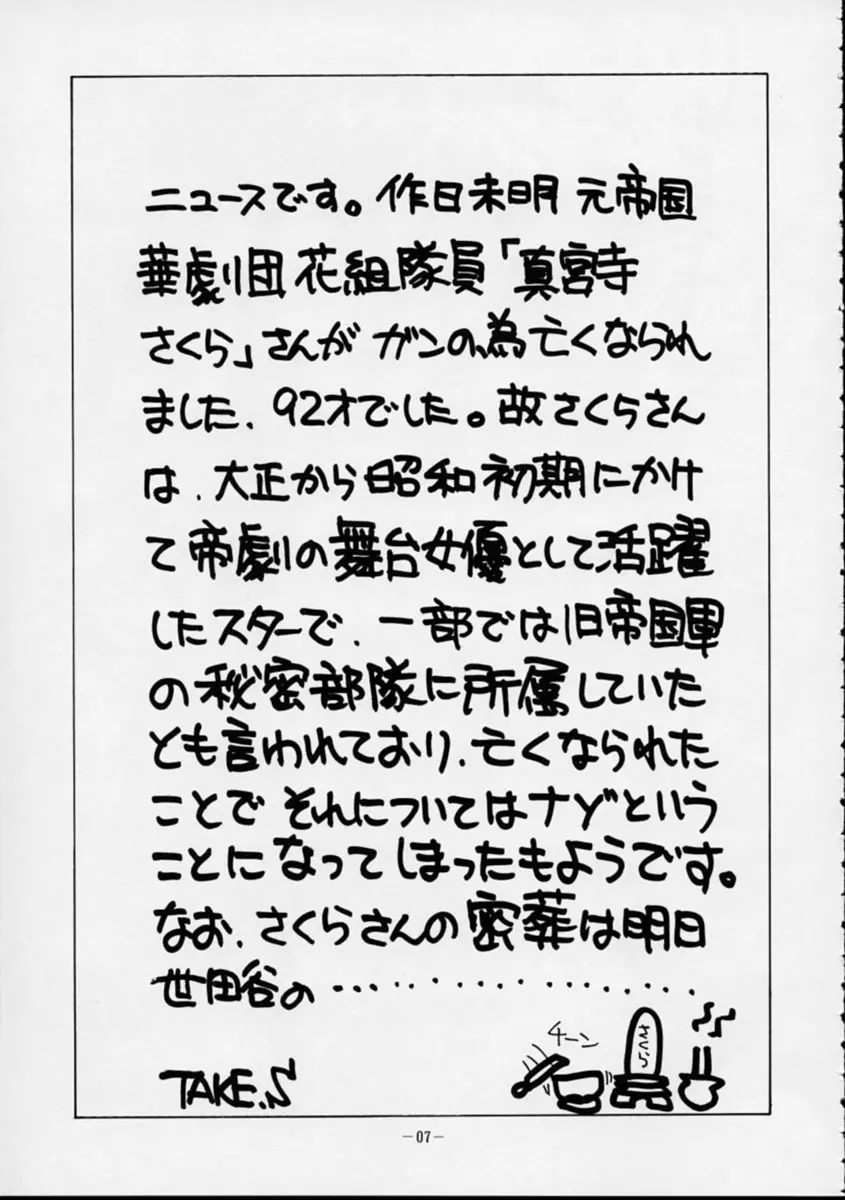 ニュースです。作日未明 元帝国
華劇団 花組隊員「真宮寺
さくら」さんが ガンの為亡くなられ
ました、92才でした。故さくらさん
は、大正から昭和初期にかけ
て帝劇の舞台女優として活躍
したスターで、一部では旧帝国軍
の秘密部隊に所属していた
とも言われており、亡くなられた
ことで それについてはナゾという
ことになってしまったもようです。
なお、さくらさんの密葬は明日
世田谷の ‥‥‥‥‥‥‥‥‥
チーン
さくら
TAKE.S
－07－